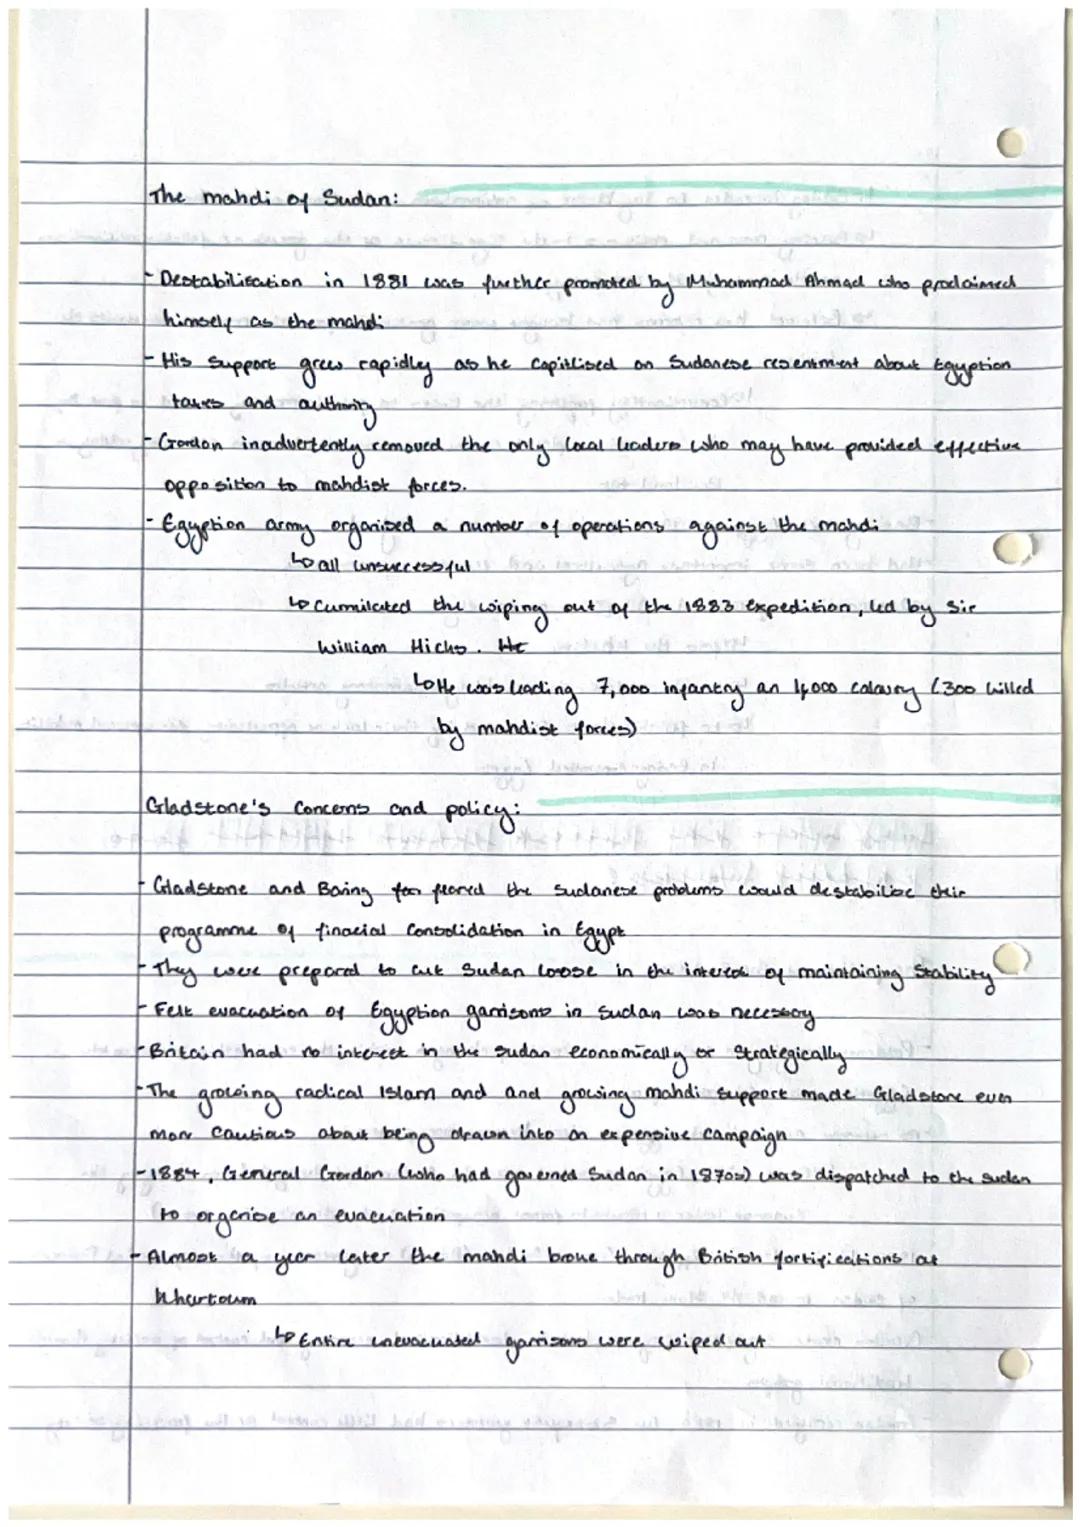 The mahdi of Sudan:
- Destabilisation in 1881 was further promoted by Muhammad Ahmad who proclaimed
himself as the mahdi
- His support grew rapidly as he capitilised on Sudanese resentment about Egyption
taxes and authority
- Gordon inadvertently removed the only local leaders who may have provided effective
opposition to mahdist forces.
- Egyption army organised a number of operations against the mahdi
↳ all unsuccessful
↳ Cumilated the wiping out of the 1883 expedition, led by Sir
William Hicks. He
↳ He was leading 7,000 infantry an 1,000 calavry (300 killed
by mahdist forces)
Gladstone's Concerns and policy:
- Gladstone and Baring feared the Sudanese problems would destabilise their
programme of finacial Consolidation in Egypt
- They were prepared to cut Sudan loose in the interest of maintaining Stability
- Felt evacuation of Egyption garrisons in Sudan was necessary
- Britain had no interest in the Sudan economically or Strategically
- The growing radical Islam and and growing mahdi support made Gladstone even
more Cautious about being drawn into an expensive campaign
- 1884, General Gordon (who had governed Sudan in 1870s) was dispatched to the Sudan
to organise an evacuation
- Almost a year later the mahdi broke through British fortifications at
Khartoum
↳ Entire unevacuated garrisons were wiped out